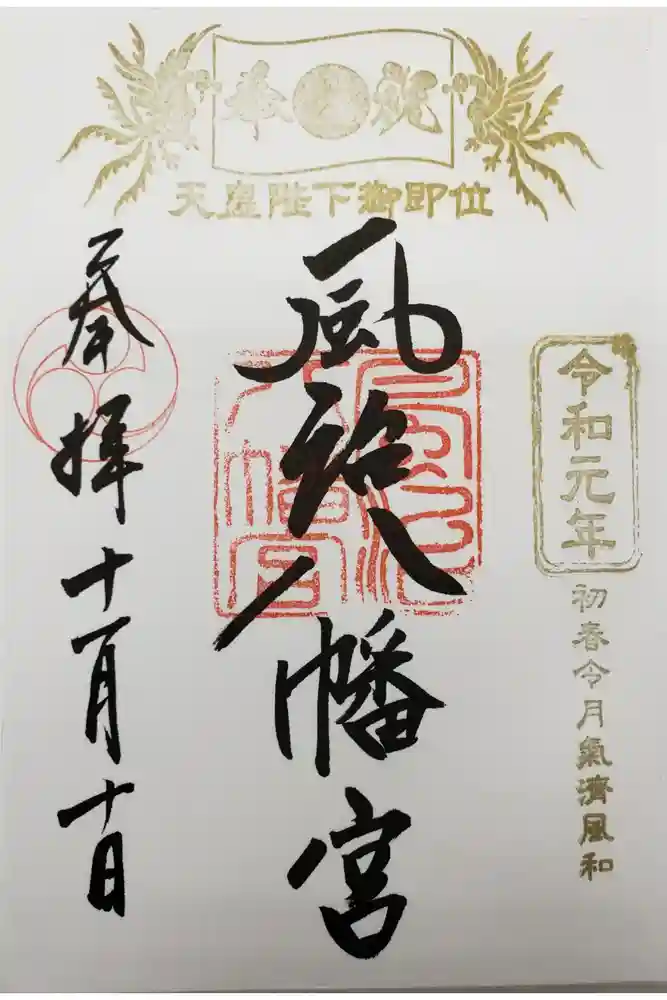 奉祝
天皇陛下御即位
令和元年
初春令月氣淑風和
風治八幡宮
奉拝
十一月十日
風治八幡宮